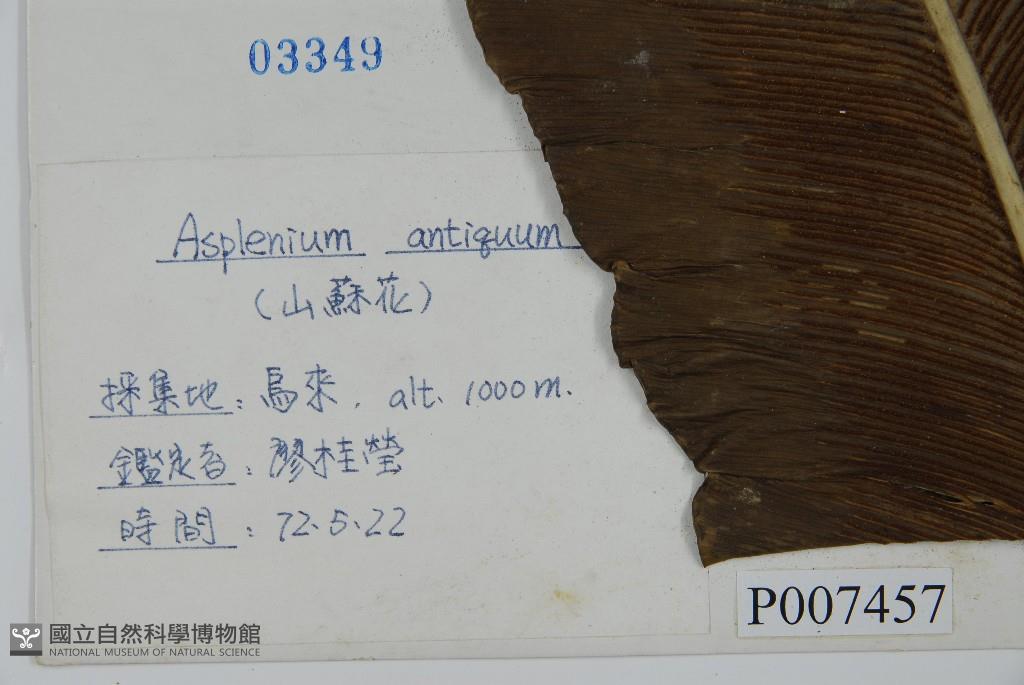 03349
Asplenium antiquum
(山蘇花)
採集地：烏來. alt. 1000m.
鑑定者：廖桂瑩
時間：72.5.22
P007457
國立自然科學博物館
NATIONAL MUSEUM OF NATURAL SCIENCE